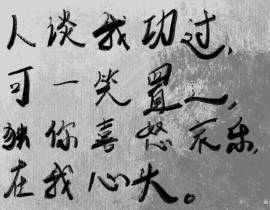 人谈我功过，
可一笑置之，
独你喜怒哀乐，
在我心头。